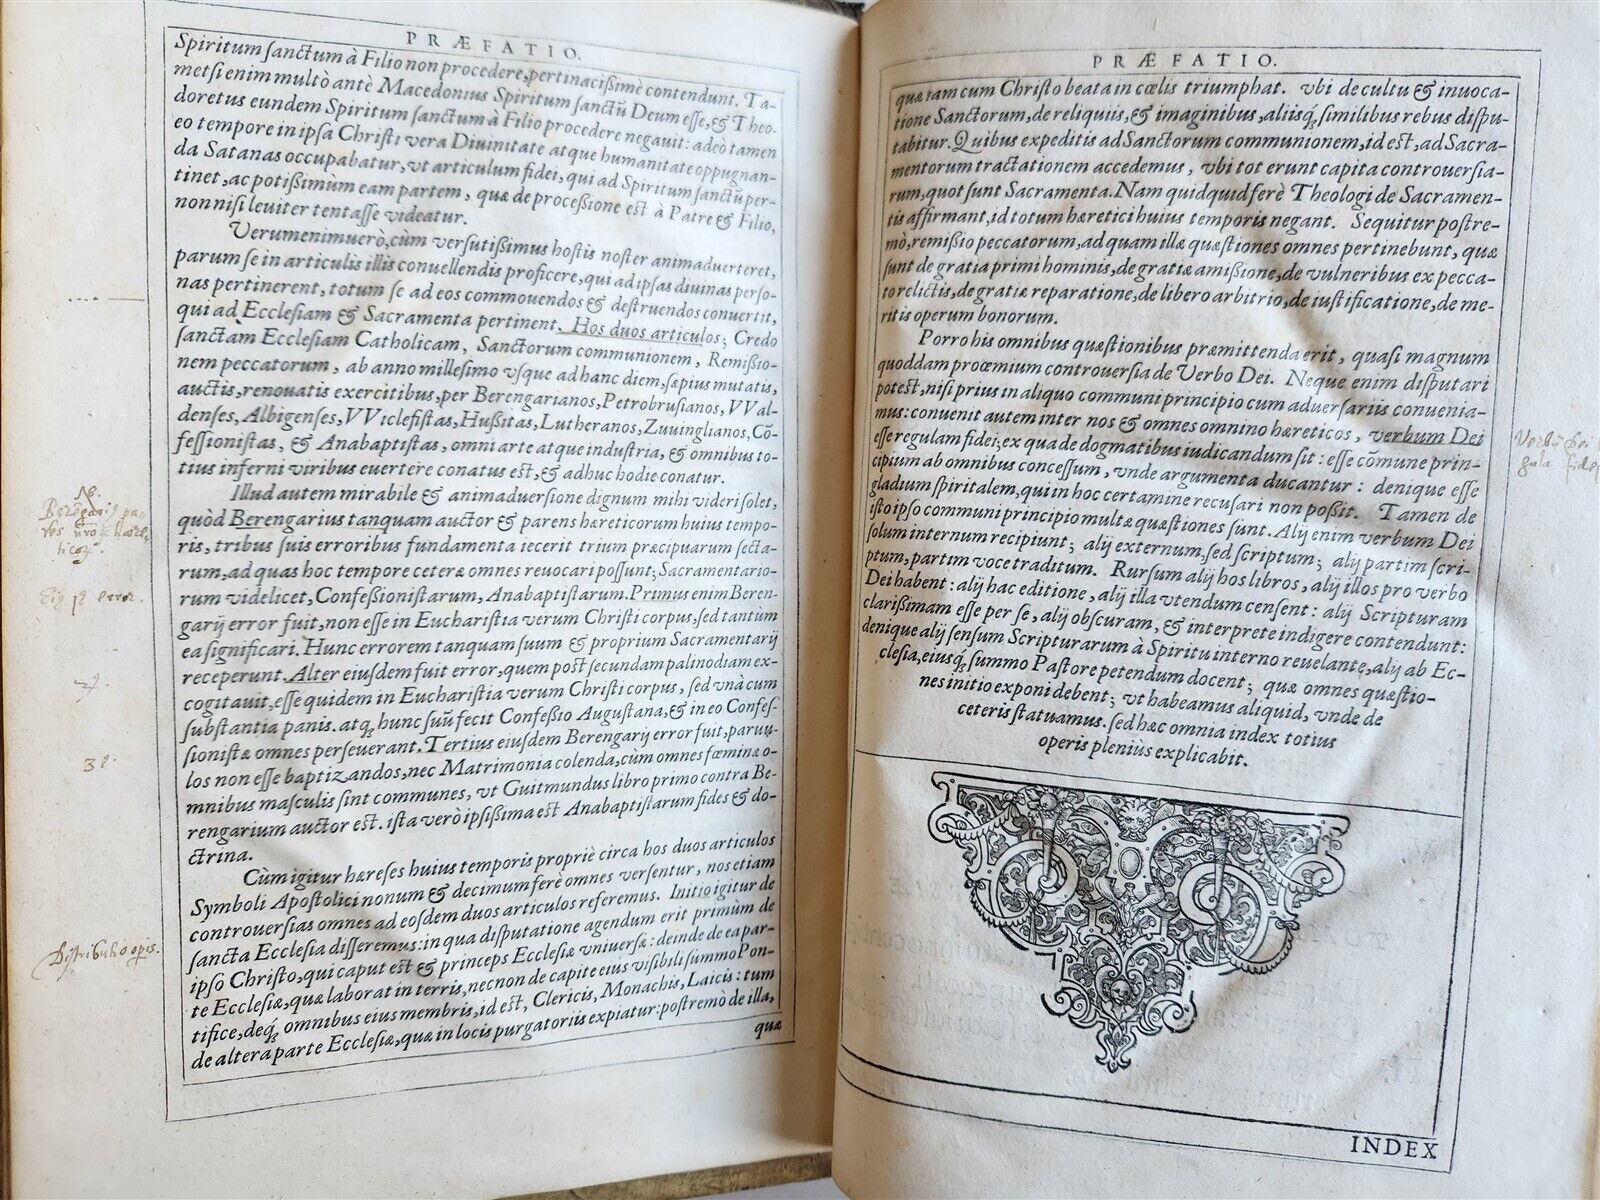 PRÆFATIO.
Spiritum ſanctum à Filio non procedere, pertinaciſſimè contendunt. Ta-
metſi enim multò antè Macedonius Spiritum ſanctũ Deum eſſe, & Theo-
doretus eundem Spiritum ſanctum à Filio procedere negauit: adeò tamen
eo tempore in ipſa Chriſti vera Diuinitate atque humanitate oppugnan-
da Satanas occupabatur, vt articulum fidei, qui ad Spiritum ſanctũ per-
tinet, ac potißimum eam partem, quæ de proceßione eſt à Patre & Filio,
non niſi leuiter tentaſſe videatur.
Verumenimuerò, cùm verſutißimus hoſtis noſter animaduerteret,
parum ſe in articulis illis conuellendis proficere, qui ad ipſas diuinas perſo-
nas pertinerent, totum ſe ad eos commouendos & deſtruendos conuertit,
qui ad Eccleſiam & Sacramenta pertinent. Hos duos articulos; Credo
ſanctam Eccleſiam Catholicam, Sanctorum communionem, Remißio-
nem peccatorum, ab anno milleſimo vſque ad hanc diem, ſæpius mutatis,
auctis, renouatis exercitibus, per Berengarianos, Petrobruſianos, VVal-
denſes, Albigenſes, VViclefiſtas, Hußitas, Lutheranos, Zuuinglianos, Cõ-
feßioniſtas, & Anabaptiſtas, omni arte atque induſtria, & omnibus to-
tius inferni viribus euertere conatus eſt, & adhuc hodie conatur.
Illud autem mirabile & animaduerſione dignum mihi videri ſolet,
quòd Berengarius tanquam auctor & parens hæreticorum huius tempo-
ris, tribus ſuis erroribus fundamenta iecerit trium præcipuarum ſecta-
rum, ad quas hoc tempore ceteræ omnes reuocari poſſunt; Sacramentario-
rum videlicet, Confeßioniſtarum, Anabaptiſtarum. Primus enim Beren-
garij error fuit, non eſſe in Euchariſtia verum Chriſti corpus, ſed tantùm
ea ſignificari. Hunc errorem tanquam ſuum & proprium Sacramentarij
receperunt. Alter eiuſdem fuit error, quem poſt ſecundam palinodiam ex-
cogitauit, eſſe quidem in Euchariſtia verum Chriſti corpus, ſed vnà cum
ſubſtantia panis. atq́, hunc ſuũ fecit Confeßio Auguſtana, & in eo Confeſ-
ſioniſtæ omnes perſeuerant. Tertius eiuſdem Berengarij error fuit, paruu-
los non eſſe baptizandos, nec Matrimonia colenda, cùm omnes fœminæ o-
mnibus maſculis ſint communes, vt Guitmundus libro primo contra Be-
rengarium auctor eſt. iſta verò ipſißima eſt Anabaptiſtarum fides & do-
ctrina.
Cùm igitur hæreſes huius temporis propriè circa hos duos articulos
Symboli Apoſtolici nonum & decimum ferè omnes verſentur, nos etiam
controuerſias omnes ad eoſdem duos articulos referemus. Initio igitur de
ſancta Eccleſia diſſeremus: in qua diſputatione agendum erit primùm de
ipſo Chriſto, qui caput eſt & princeps Eccleſiæ vniuerſæ: deinde de ea par-
te Eccleſiæ, quæ laborat in terris, necnon de capite eius viſibili ſummo Pon-
tifice, deq́; omnibus eius membris, id eſt, Clericis, Monachis, Laicis: tum
de altera parte Eccleſiæ, quæ in locis purgatoriis expiatur: poſtremò de illa,
quæ
Diſtributio operis.
PRÆFATIO.
quæ iam cum Chriſto beata in cœlis triumphat. vbi de cultu & inuoca-
tione Sanctorum, de reliquiis, & imaginibus, aliisq́, ſimilibus rebus diſpu-
tabitur. Quibus expeditis ad Sanctorum communionem, id eſt, ad Sacra-
mentorum tractationem accedemus, vbi tot erunt capita controuerſia-
rum, quot ſunt Sacramenta. Nam quidquid ferè Theologi de Sacramen-
tis affirmant, id totum hæretici huius temporis negant. Sequitur poſtre-
mò, remißio peccatorum, ad quam illæ quæſtiones omnes pertinebunt, quæ
ſunt de gratia primi hominis, de gratiæ amißione, de vulneribus ex pecca-
to relictis, de gratiæ reparatione, de libero arbitrio, de iuſtificatione, de me-
ritis operum bonorum.
Porro his omnibus quæſtionibus præmittenda erit, quaſi magnum
quoddam proœmium controuerſia de Verbo Dei. Neque enim diſputari
poteſt, niſi prius in aliquo communi principio cum aduerſariis conuenia-
mus: conuenit autem inter nos & omnes omnino hæreticos, verbum Dei
eſſe regulam fidei, ex qua de dogmatibus iudicandum ſit: eſſe cõmune prin-
cipium ab omnibus conceſſum, vnde argumenta ducantur: denique eſſe
gladium ſpiritalem, qui in hoc certamine recuſari non poßit. Tamen de
iſto ipſo communi principio multæ quæſtiones ſunt. Alij enim verbum Dei
ſolum internum recipiunt; alij externum, ſed ſcriptum; alij partim ſcri-
ptum, partim voce traditum. Rurſum alij hos libros, alij illos pro verbo
Dei habent: alij hac editione, alij illa vtendum cenſent: alij Scripturam
clarißimam eſſe per ſe, alij obſcuram, & interprete indigere contendunt:
denique alij ſenſum Scripturarum à Spiritu interno reuelante, alij ab Ec-
cleſia, eiusq́, ſummo Paſtore petendum docent; quæ omnes quæſtio-
nes initio exponi debent; vt habeamus aliquid, vnde de
ceteris ſtatuamus. ſed hæc omnia index totius
operis pleniùs explicabit.
INDEX